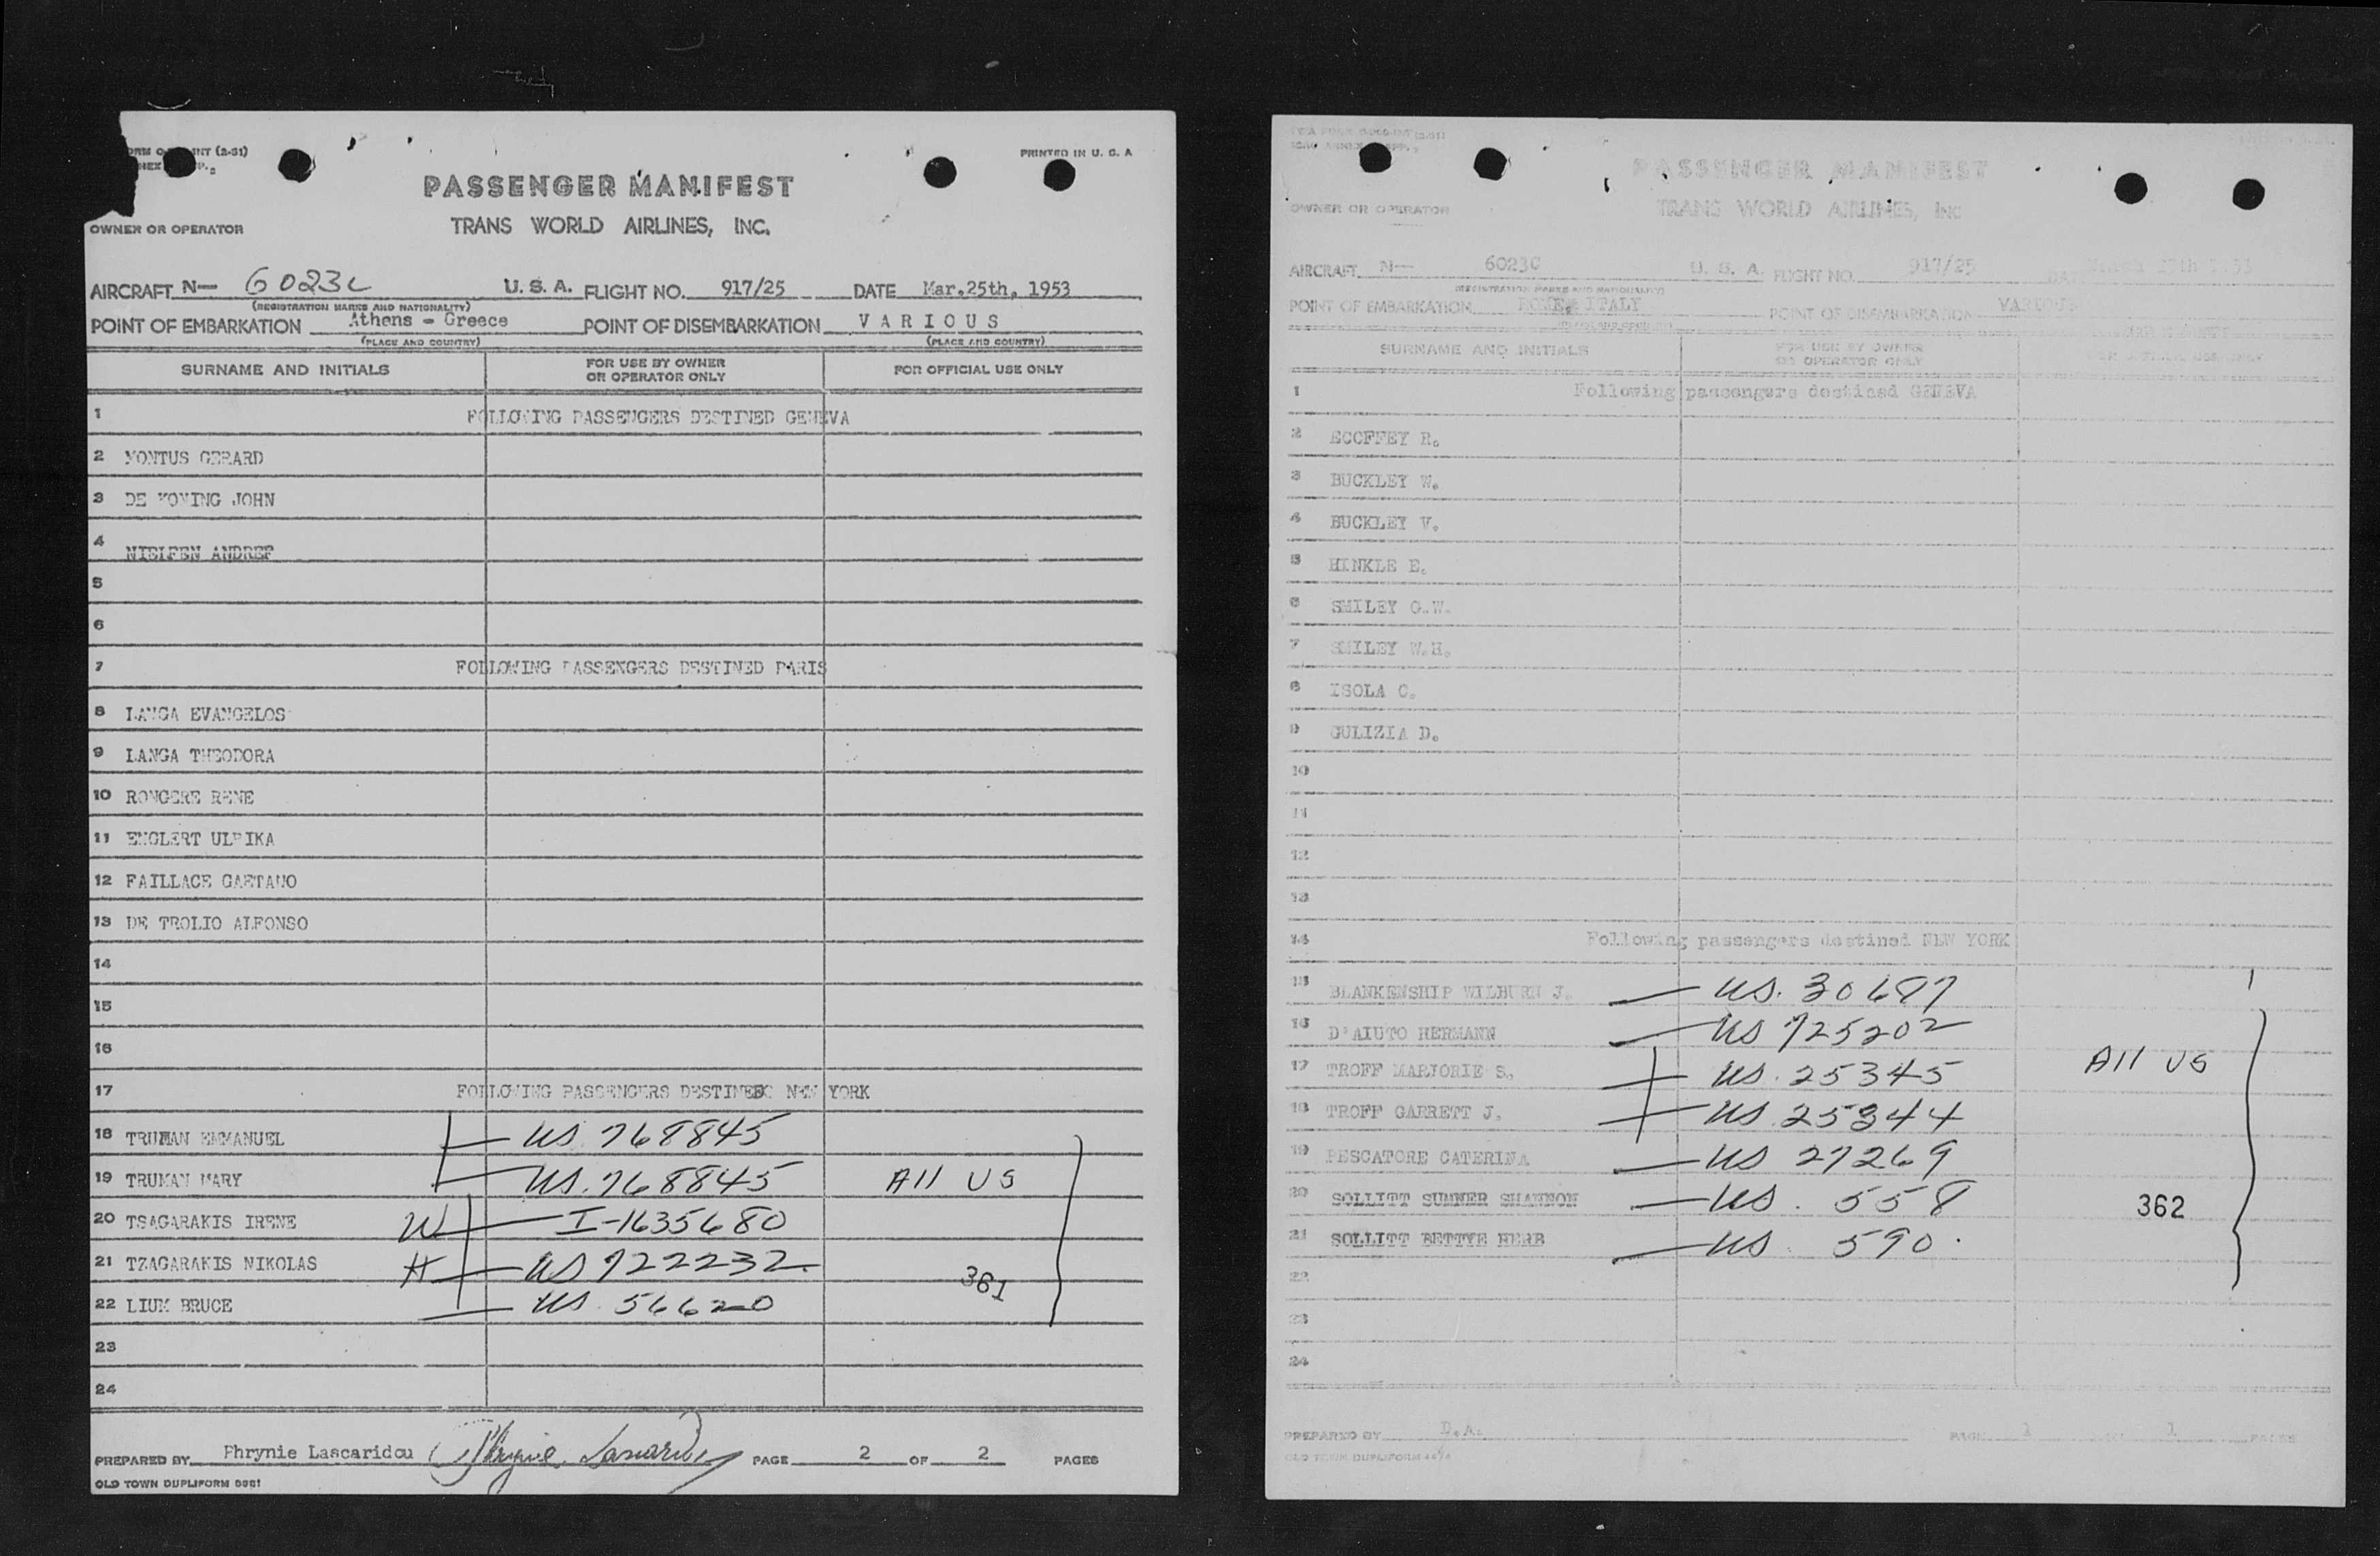 PRINTED IN U. S. A
PASSENGER MANIFEST
TRANS WORLD AIRLINES, INC.
OWNER OR OPERATOR
AIRCRAFT N— 6023C U. S. A. FLIGHT NO. 917/25 DATE Mar.25th, 1953
(REGISTRATION MARKS AND NATIONALITY)
POINT OF EMBARKATION Athens - Greece POINT OF DISEMBARKATION VARIOUS
(PLACE AND COUNTRY) (PLACE AND COUNTRY)
SURNAME AND INITIALS FOR USE BY OWNER OR OPERATOR ONLY FOR OFFICIAL USE ONLY
1 FOLLOWING PASSENGERS DESTINED GENEVA
2 MONTUS GERARD
3 DE KONING JOHN
4 ANDREE
5
6
7 FOLLOWING PASSENGERS DESTINED PARIS
8 LANGA EVANGELOS
9 LANGA THEODORA
10 RONGERE RENE
11 ENGLERT ULRIKA
12 FAILLACE GAETANO
13 DE TROLIO ALFONSO
14
15
16
17 FOLLOWING PASSENGERS DESTINED NEW YORK
18 TRUMAN EMMANUEL — US 768845
19 TRUMAN MARY — US. 768845 All US
20 TSAGARAKIS IRENE W — I-1635680
21 TZAGARAKIS NIKOLAS H — US 722232 361
22 LIUM BRUCE — US. 56620
23
24
PREPARED BY Phrynie Lascaridou PAGE 2 OF 2 PAGES
OLD TOWN DUPLIFORM
PASSENGER MANIFEST
TRANS WORLD AIRLINES, INC
OWNER OR OPERATOR
AIRCRAFT N— 6023C U. S. A. FLIGHT NO. 917/25 DATE March 25th
(REGISTRATION MARKS AND NATIONALITY)
POINT OF EMBARKATION ROME, ITALY POINT OF DISEMBARKATION VARIOUS
SURNAME AND INITIALS FOR USE BY OWNER OR OPERATOR ONLY FOR OFFICIAL USE ONLY
1 Following passengers destined GENEVA
2 ECOFFEY R.
3 BUCKLEY W.
4 BUCKLEY V.
5 HINKLE E.
6 SMILEY G.W.
7 SMILEY W.H.
8 ISOLA C.
9 GULIZIA D.
10
11
12
13
14 Following passengers destined NEW YORK
15 BLANKENSHIP WILBURN J. — US. 30687
16 D'AIUTO HERMANN — US 725202
17 TROFF MARJORIE S. — US. 25345 All US
18 TROFF GARRETT J. — US. 25344
19 PESCATORE CATERINA — US 27269
20 SOLLITT SUMNER SHANNON — US. 558 362
21 SOLLITT BETTYE HERB — US 590.
22
23
24
PREPARED BY D.A. PAGE 1 1 PAGES
OLD TOWN DUPLIFORM